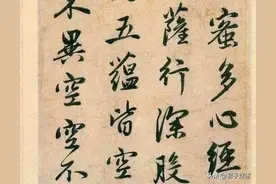 蜜多心經
薩行深般
五蘊皆空
不異空空不